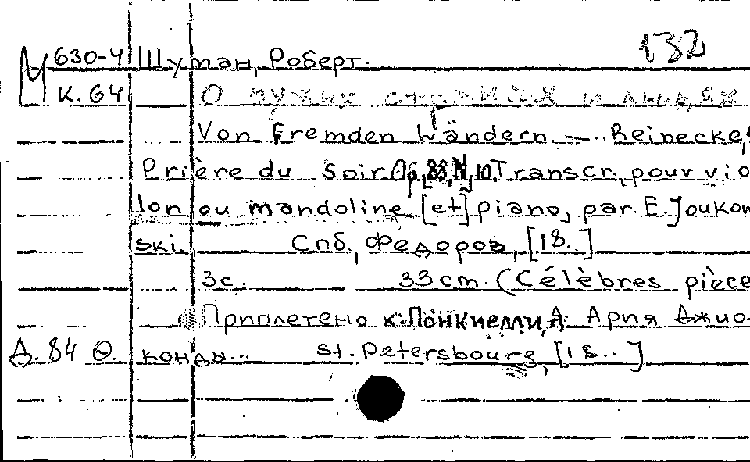 М 630-4 Шуман, Роберт. 132
К. 64 О чужих странах и людях
Von Fremden Ländern — . Reinecke,
Prière du Soir Op. 88, N 10. Transcr. pour vio
lon ou mandoline [et] piano, par E. Joukow
ski. Спб, Федоров, [18..]
3с. 33 cm. (Célèbres pièce
Приплетено к: Понкиелли, А. Ария Джио-
Д. 84 Ф. конды... St. Petersbourg, [18..]